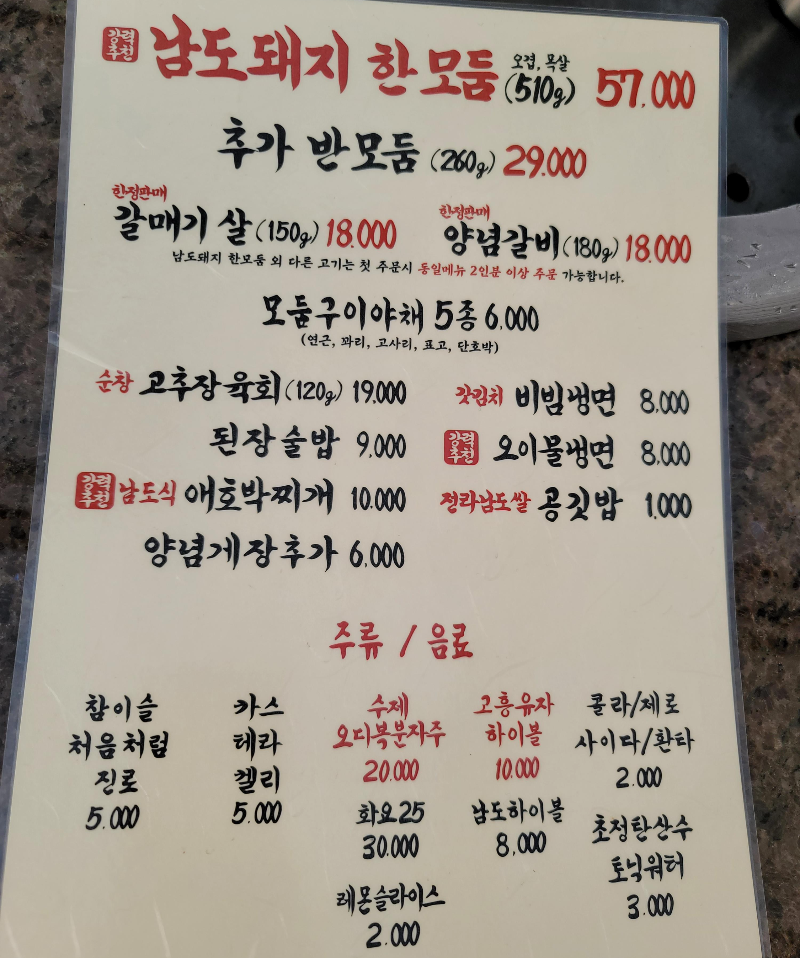 강력추천 남도돼지 한모둠 오겹, 목살 (510g) 57,000
추가 반모둠 (260g) 29.000
한정판매 한정판매
갈매기 살 (150g) 18.000 양념갈비 (180g) 18.000
남도돼지 한모둠 외 다른 고기는 첫 주문시 동일메뉴 2인분 이상 주문 가능합니다.
모둠구이야채 5종 6,000
(연근, 꽈리, 고사리, 표고, 단호박)
순창 고추장 육회 (120g) 19,000 갓김치 비빔냉면 8,000
된장술밥 9,000 강력추천 오이물냉면 8,000
강력추천 남도식 애호박찌개 10.000 전라남도쌀 공깃밥 1,000
양념게장추가 6,000
주류 / 음료
참이슬
처음처럼
진로
5.000
카스
테라
켈리
5.000
수제
오디복분자주
20.000
화요25
30.000
레몬슬라이스
2.000
고흥유자
하이볼
10.000
남도하이볼
8,000
콜라/제로
사이다/환타
2.000
초정탄산수
토닉워터
3.000